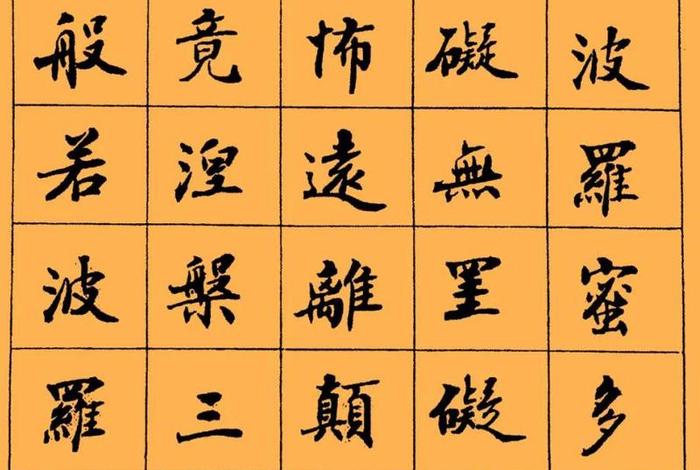 波羅蜜多
礙無罣礙
怖遠離顛
竟涅槃三
般若波羅